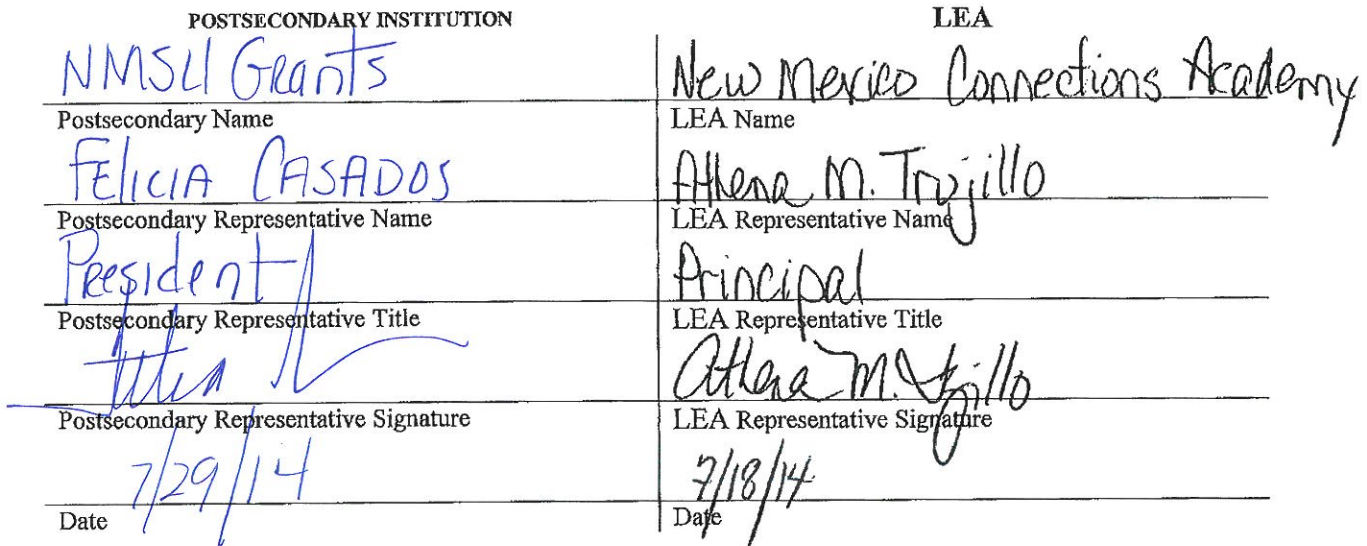 POSTSECONDARY INSTITUTION
NMSU Grants
Postsecondary Name
FELICIA CASADOS
Postsecondary Representative Name
President
Postsecondary Representative Title
Postsecondary Representative Signature
7/29/14
Date
LEA
New Mexico Connections Academy
LEA Name
Athena M. Trujillo
LEA Representative Name
Principal
LEA Representative Title
Athena M. Trujillo
LEA Representative Signature
7/18/14
Date